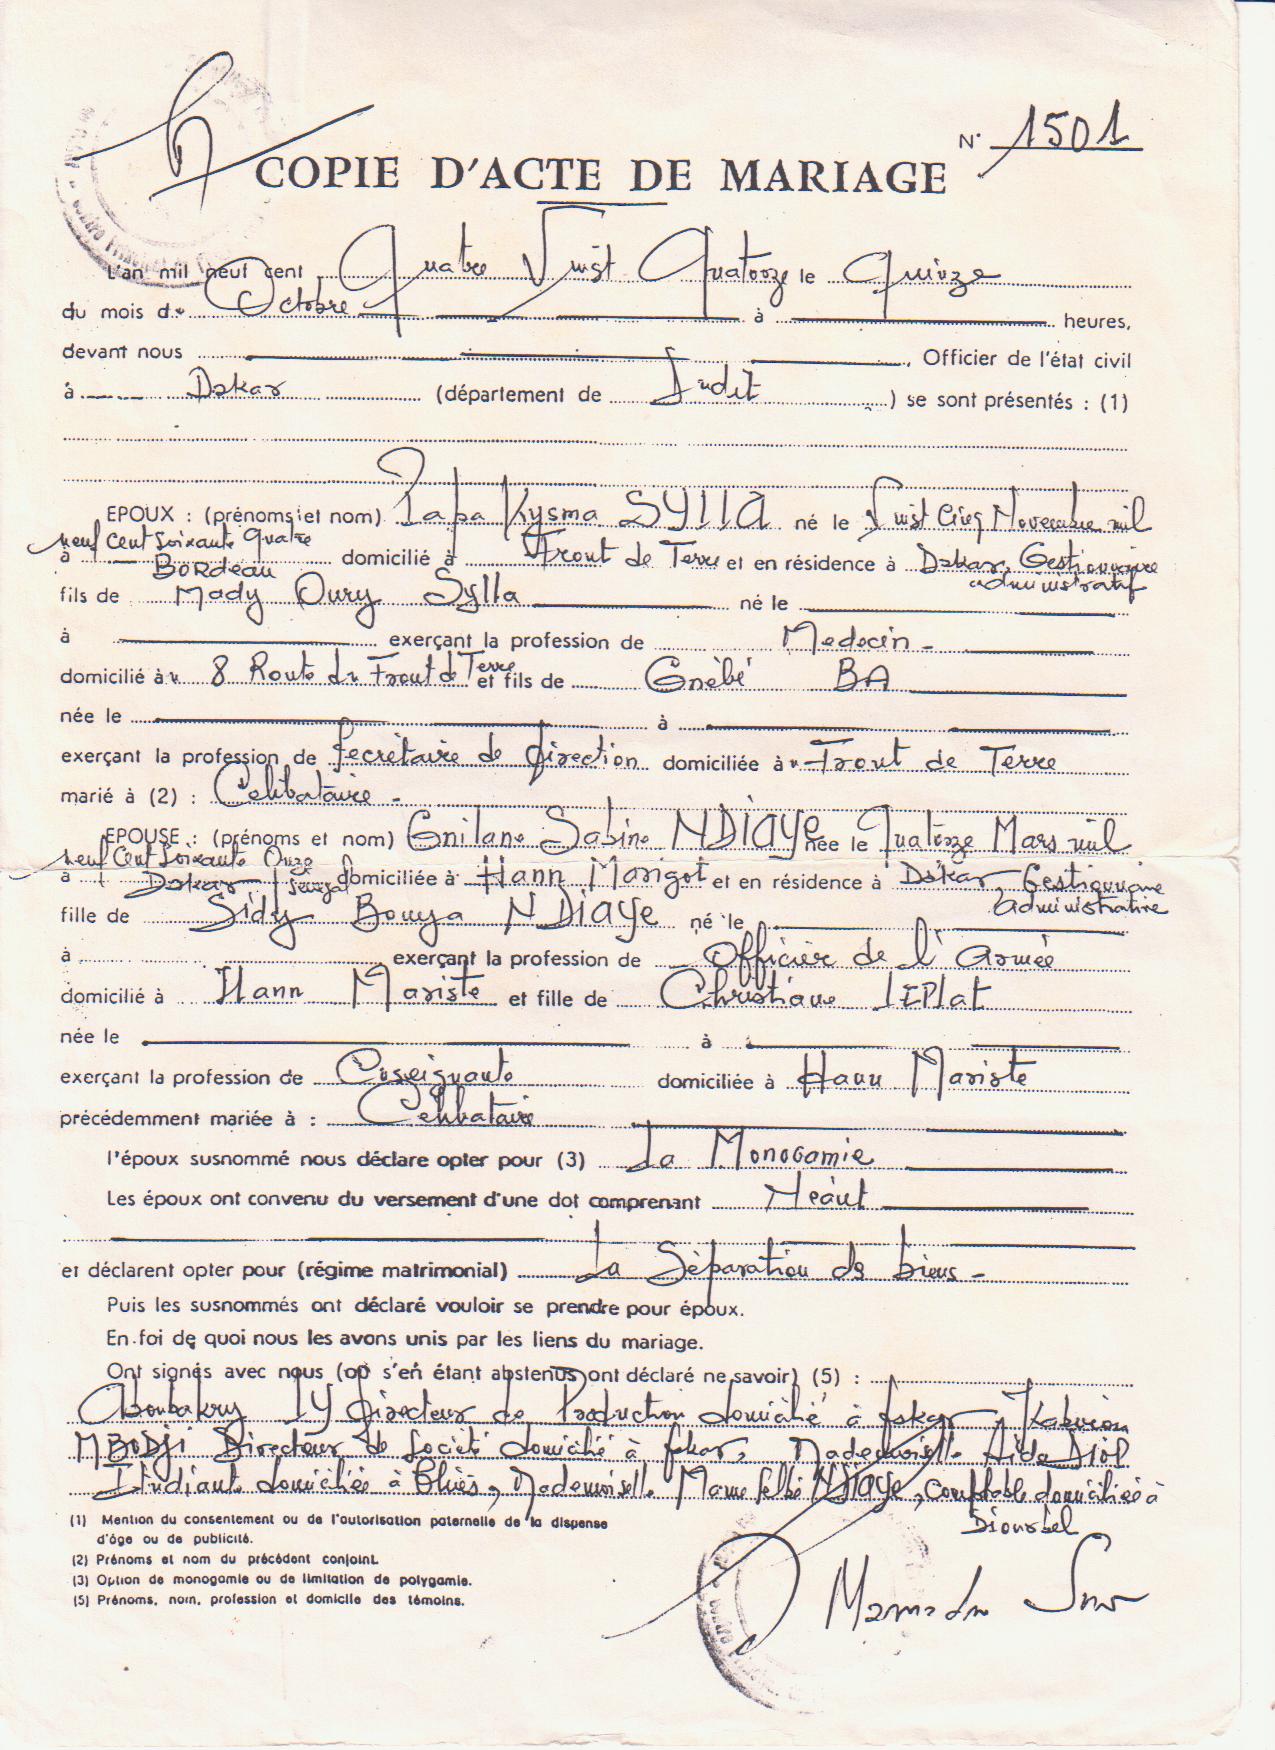 N° 1501
COPIE D'ACTE DE MARIAGE
L'an mil neuf cent Quatre Vingt Quatorze le Quinze
du mois d Octobre à heures,
devant nous , Officier de l'état civil
à Dakar (département de dudit ) se sont présentés : (1)
EPOUX : (prénoms et nom) Papa Kysma SYLLA né le Vingt Cinq Novembre mil
neuf Cent Soixante Quatre
à Bordeau domicilié à Front de Terre et en résidence à Dakar, Gestionnaire administratif
fils de Mady Oury Sylla né le
à exerçant la profession de Medecin -
domicilié à 8 Route du Front de Terre et fils de Gnèbé BA
née le à
exerçant la profession de Secrétaire de direction domiciliée à Front de Terre
marié à (2) : Celibataire -
EPOUSE : (prénoms et nom) Gnilane Sabine NDIAYE née le Quatorze Mars mil
neuf Cent Soixante Onze
à Dakar / Sénégal domiciliée à Hann Marigot et en résidence à Dakar, Gestionnaire administrative
fille de Sidy Bouya NDIAYE né le
à exerçant la profession de Officier de l'Armée
domicilié à Hann Mariste et fille de Christiane LEPlat
née le à
exerçant la profession de Enseignante domiciliée à Hann Mariste
précédemment mariée à : Celibataire
l'époux susnommé nous déclare opter pour (3) La Monogamie
Les époux ont convenu du versement d'une dot comprenant Néant
et déclarent opter pour (régime matrimonial) La Séparation de biens -
Puis les susnommés ont déclaré vouloir se prendre pour époux.
En foi de quoi nous les avons unis par les liens du mariage.
Ont signés avec nous (où s'en étant abstenus ont déclaré ne savoir) (5) :
Aboubakry LY directeur de Production domicilié à Dakar,
MBODJI Directeur de Société domicilié à Dakar, Mademoiselle Aida DIOP
Etudiante domiciliée à Thiès, Mademoiselle Mame NDIAYE, Comptable domiciliée à
Diourbel
(1) Mention du consentement ou de l'autorisation paternelle de la dispense
d'âge ou de publicité.
(2) Prénoms et nom du précédent conjoint.
(3) Option de monogamie ou de limitation de polygamie.
(5) Prénoms, nom, profession et domicile des témoins.
Mamadu